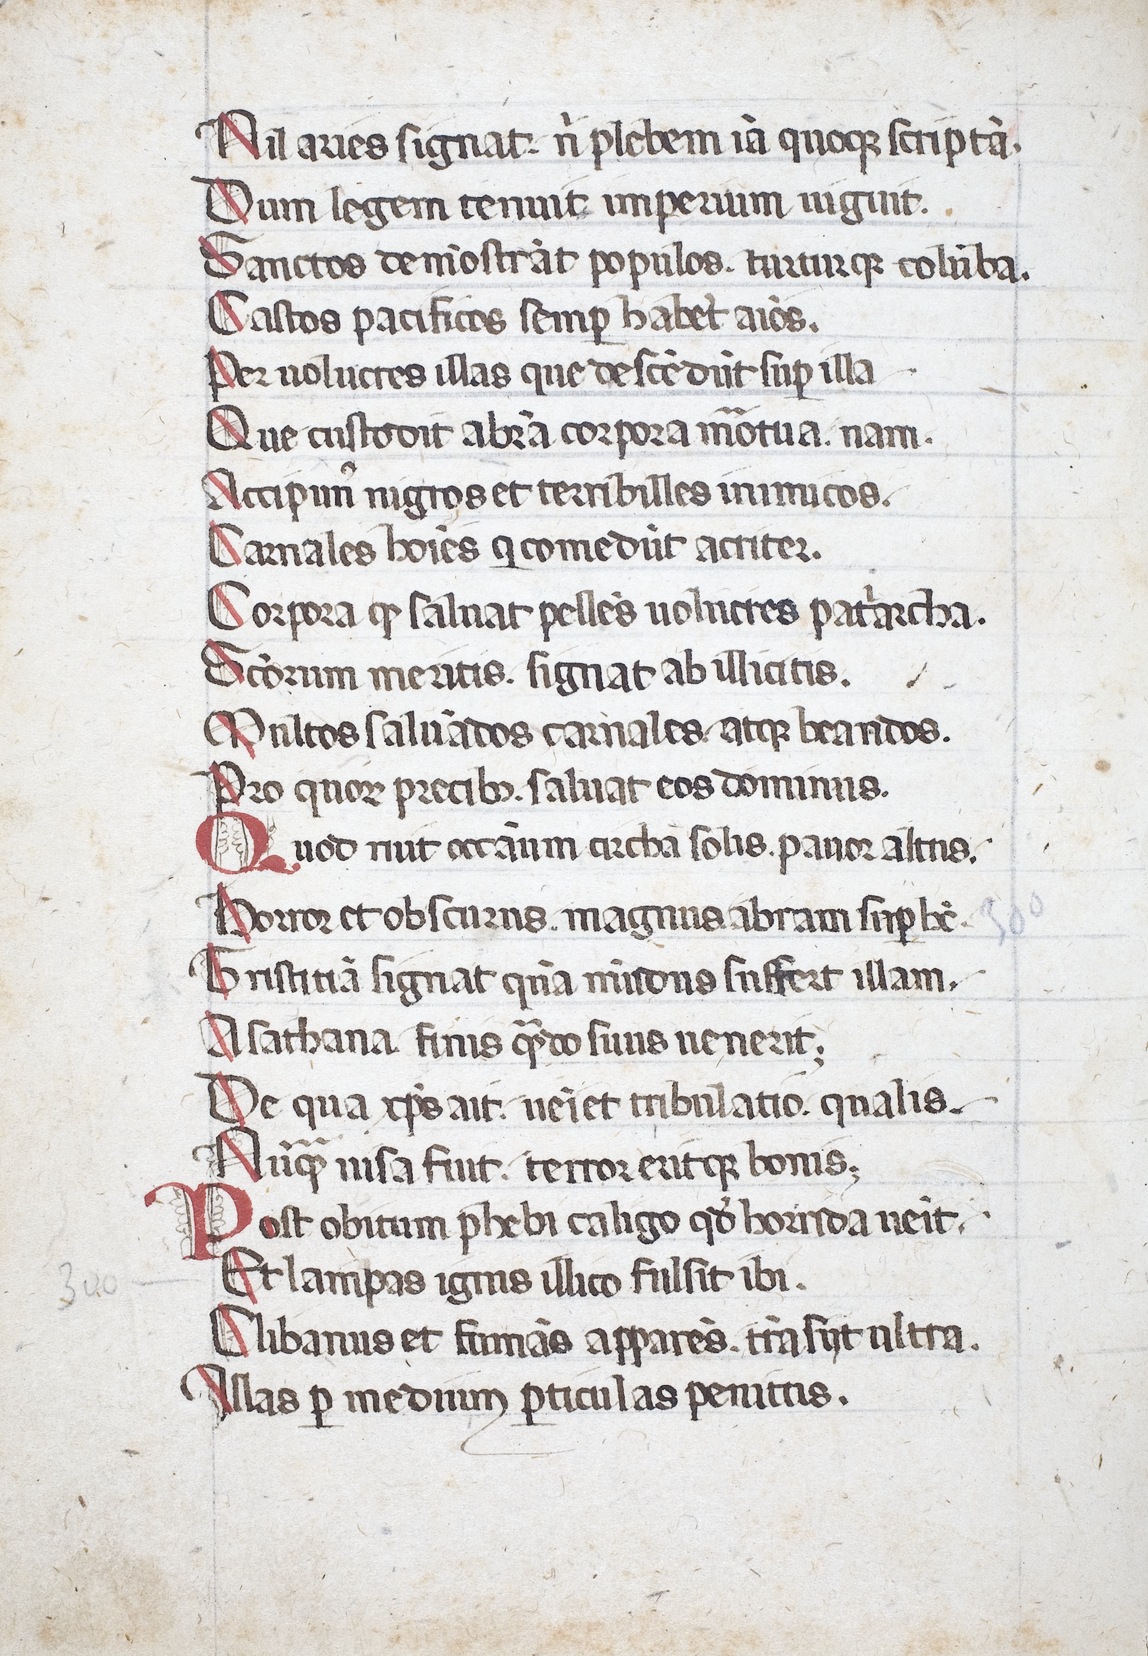 Nil aries signat. nͥ plebem iā quoqꝫ scriptā.
Dum legem tenuit imperium uiguit.
Sanctos demōstrāt populos. turturqꝫ colūba.
Castos pacificos semꝑ habet aīos.
Per uolucres illas que descēdūt suꝑ illa
Que custodit abrā corpora mortua. nam.
Accipiun̄ nigros et terribilles inimicos.
Carnales hoīes q comedūt acriter.
Corpora qꝫ saluat pellēs uolucres patͥarcha.
Scōrum meritis. signat ab illicitis.
Multos saluādos carnales. atqꝫ beandos.
Pro quoꝝ precibꝫ. saluat eos dominus.
Quod ruit occāum circha solis. pauor altus.
Horror et obscurus. magnus abram suꝑ bē
300
Tristitiā signat quā mūdus suffert illam.
A sathana finis qᷓdo suus uenerit;
De qua xp̄s ait. ueīet tribulatio. qualis.
Nūqᷓ uisa fuit. terror eritqꝫ bonis;
Post obitum phebi caligo qd̄ horrida uēit.
300
Et lampas ignis illico fulsit ibi.
Clibanus et fumās apparēs. trāsijt ultra.
Illas ꝑ medium ꝑticulas penitus.